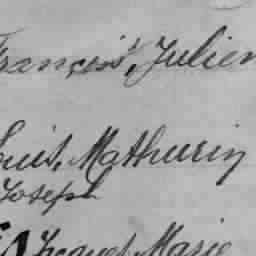 François, Julien
Louis, Mathurin
Joseph
Jacques Marie